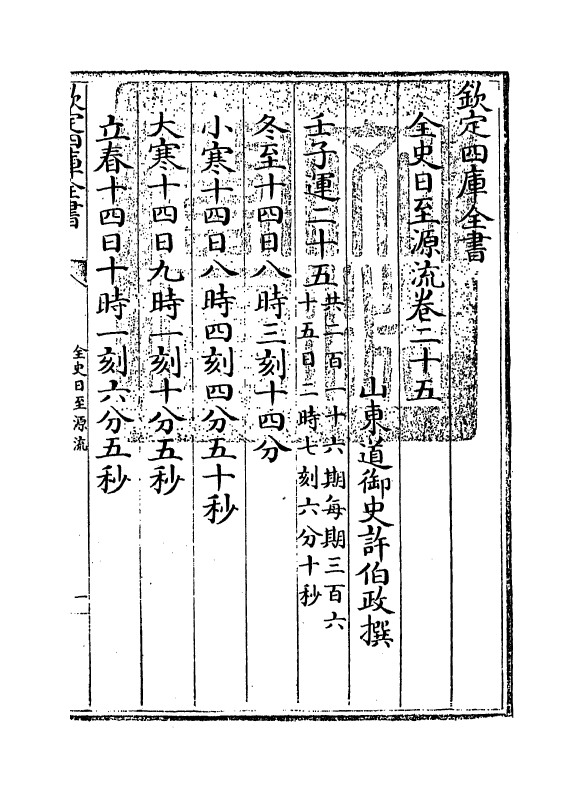 欽定四庫全書
全史日至源流卷二十五
山東道御史許伯政撰
壬子運二十五共二百一十六期每期三百六十五日二時七刻六分十秒
冬至十四日八時三刻十四分
小寒十四日八時四刻四分五十秒
大寒十四日九時一刻十分五秒
立春十四日十時一刻六分五秒
欽定四庫全書
全史日至源流
一